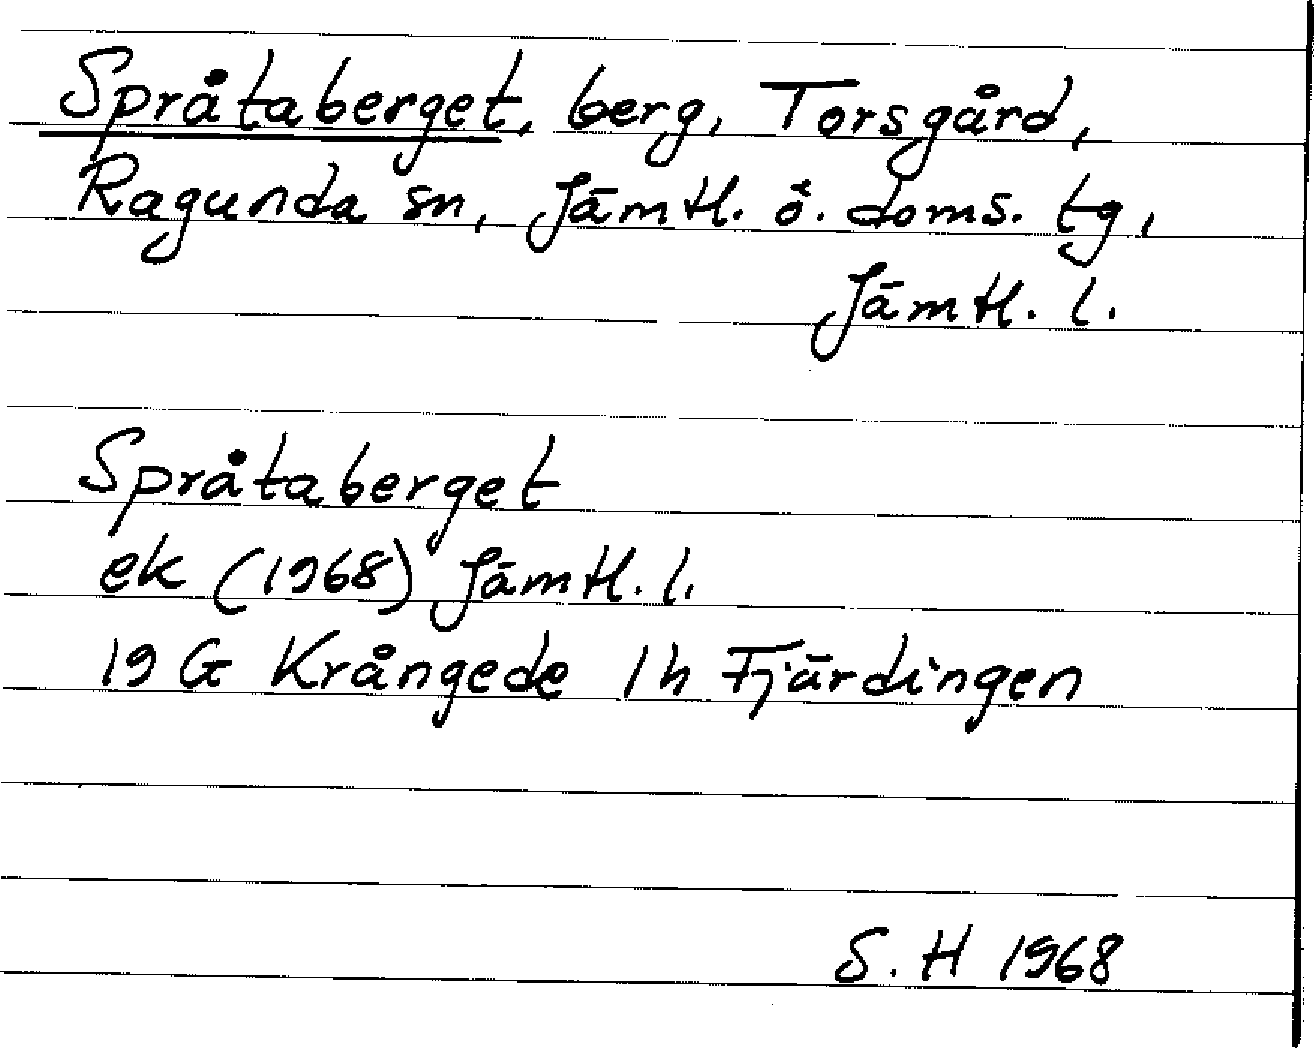 Språtaberget, berg, Torsgård,
Ragunda sn, Jämtl. ö. doms. tg,
Jämtl. l.
Språtaberget
ek (1968) Jämtl. l.
19 G Krångede 1h Fjärdingen
S. H 1968